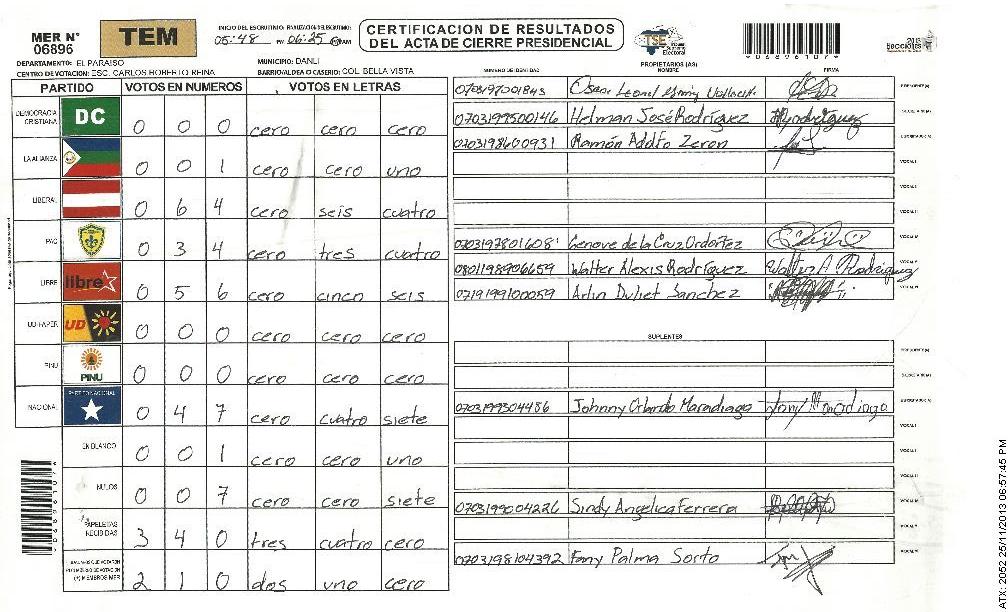 MER N° 06896
TEM
INICIO DEL ESCRUTINIO:
05:48 PM 06:25 PM
CERTIFICACION DE RESULTADOS
DEL ACTA DE CIERRE PRESIDENCIAL
TSE Tribunal Supremo Electoral
*06896107*
DEPARTAMENTO: EL PARAISO
MUNICIPIO: DANLI
CENTRO DE VOTACION: ESC. CARLOS ROBERTO REINA
BARRIO/ALDEA O CASERIO: COL. BELLA VISTA
PARTIDO VOTOS EN NUMEROS VOTOS EN LETRAS
DEMOCRACIA CRISTIANA DC 0 0 0 cero cero cero
LA ALIANZA 0 0 1 cero cero uno
LIBERAL 0 6 4 cero seis cuatro
PAC 0 3 4 cero tres cuatro
LIBRE libre 0 5 6 cero cinco seis
UD-FAPER UD 0 0 0 cero cero cero
PINU PINU 0 0 0 cero cero cero
NACIONAL PARTIDO NACIONAL 0 4 7 cero cuatro siete
EN BLANCO 0 0 1 cero cero uno
NULOS 0 0 7 cero cero siete
PAPELETAS RECIBIDAS 3 4 0 tres cuatro cero
2 1 0 dos uno cero
NUMERO DE IDENTIDAD PROPIETARIOS (AS) NOMBRE FIRMA
0703197001843 Leonel PRESIDENTE (A)
0703199500146 Helman José Rodríguez HJRodríguez SECRETARIO (A)
0703198600931 Ramón Adolfo Zeron ESCRUTADOR (A)
VOCAL I
VOCAL II
VOCAL III
0703197801608 Genove de la Cruz Ordoñez VOCAL IV
0801198906659 Walter Alexis Rodríguez Walter A Rodriguez VOCAL V
0719199100059 Arlin Duliet Sanchez VOCAL VI
SUPLENTES
PRESIDENTE (A)
SECRETARIO (A)
0703199304486 Johnny Orlando Maradiaga ESCRUTADOR (A)
VOCAL I
VOCAL II
VOCAL III
0703199004226 Sindy Angelica Ferrera VOCAL IV
VOCAL V
0703198104392 Fany Palma Sorto VOCAL VI
*06896107*
ATX: 2052 25/11/2013 06:57:45 PM